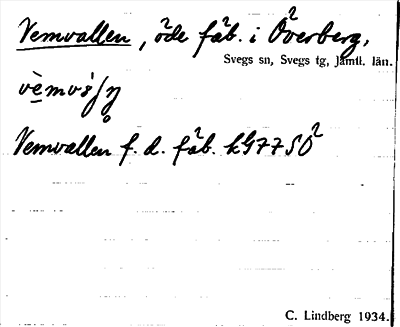 Vemvallen, öde fäb. i Överberg,
Svegs sn, Svegs tg, Jämtl. län.
Vemvallen f. d. fäb. kG77SO
C. Lindberg 1934.